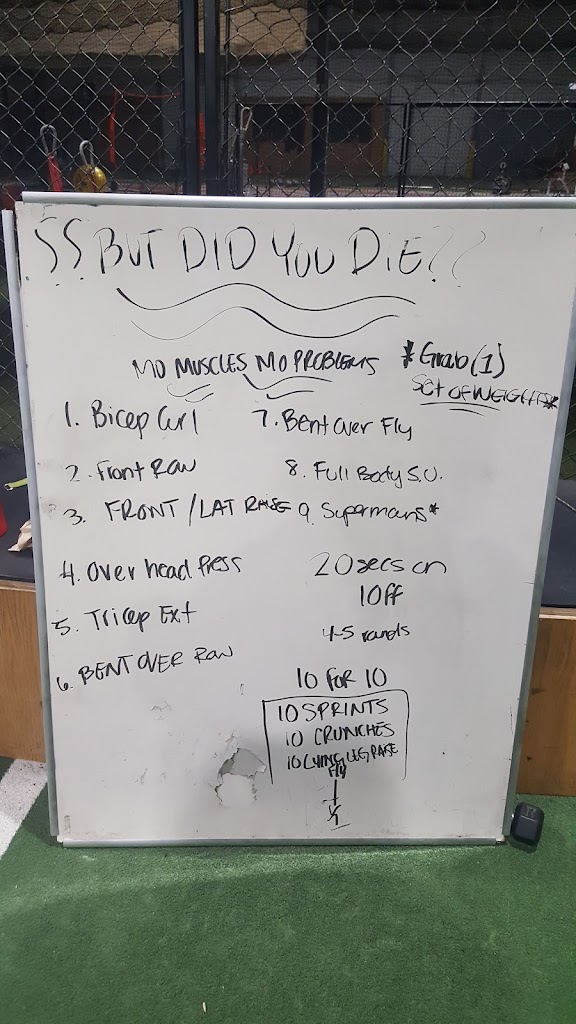 ¿¿BUT DID YOU DIE??
MO MUCLES MO PROBLEMS
*Grab (1)
SET OF WEIGHTS*
1. Bicep Curl
2. Front Row
3. FRONT / LAT RAISE
4. Over head Press
5. Tricep Ext
6. BENT OVER ROW
7. Bent Over Fly
8. Full Body S.U.
9. Supermans*
20 secs on
10ff
4-5 rounds
10 FOR 10
10 SPRINTS
10 CRUNCHES
10 LYING LEG RAISE
Fly